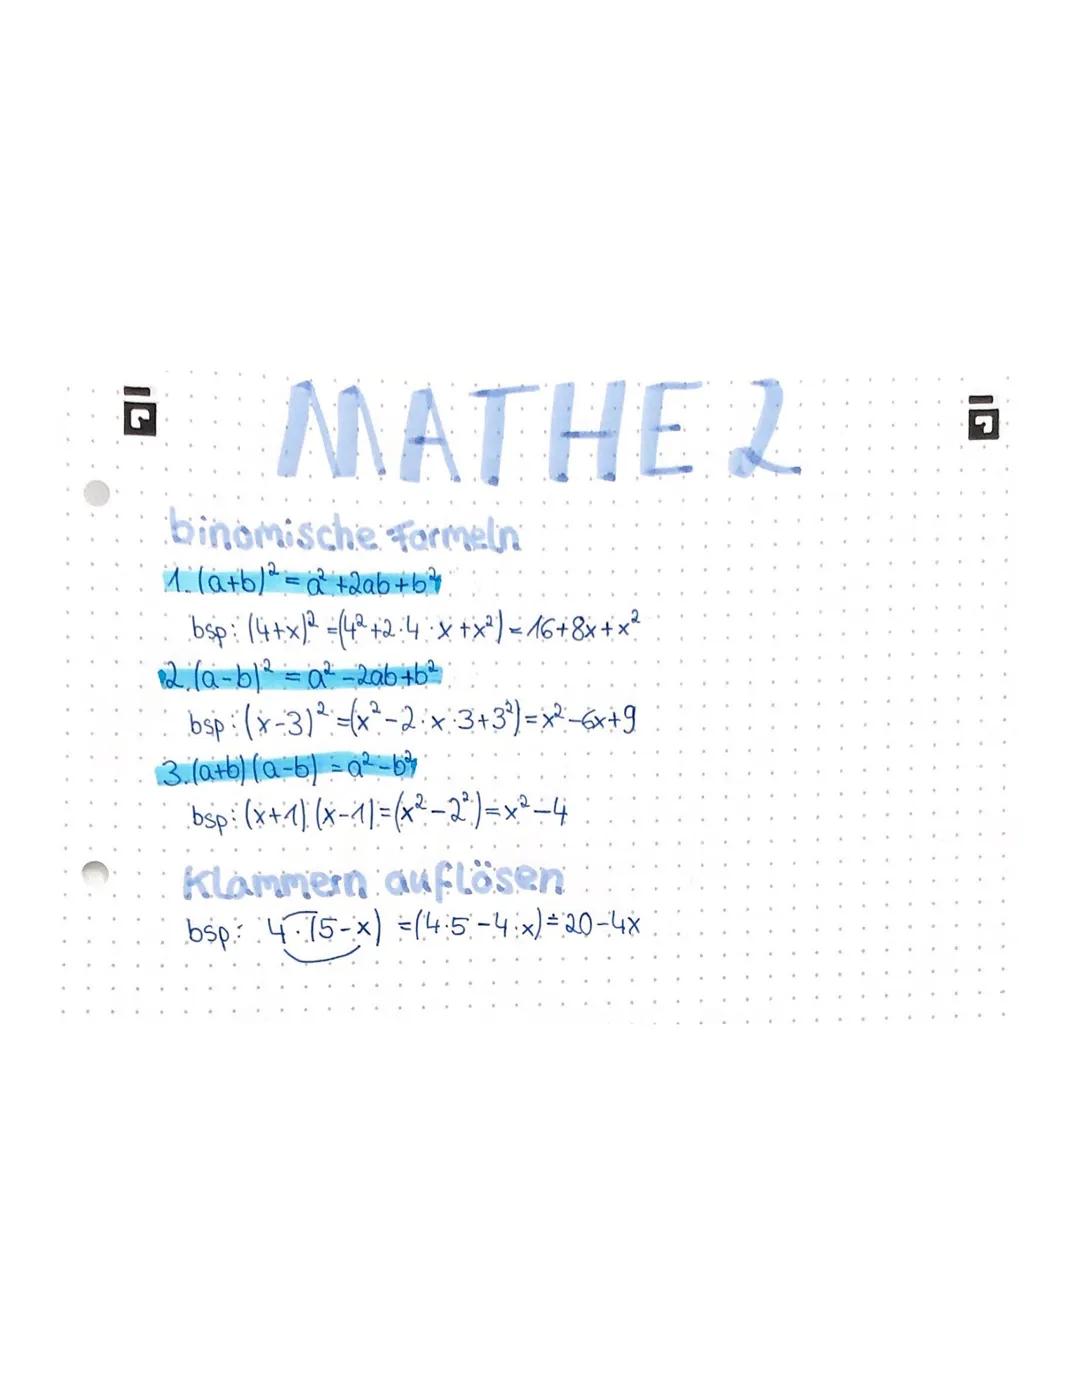 MATHE 2
binomische Formeln
1. (a+b)² = a² +2ab+b²
bsp: (4+x)² =(4²+2·4·x+x²) = 16+8x+x²
2. (a-b)² = a² -2ab+b²
bsp: (x-3)² =(x²-2·x·3+3²)=x²-6x+9
3. (a+b) (a-b) = a²-b²
bsp: (x+1) (x-1)=(x²-2²)=x²-4
Klammern auflösen
bsp: 4·(5-x) =(4·5-4·x)=20-4x